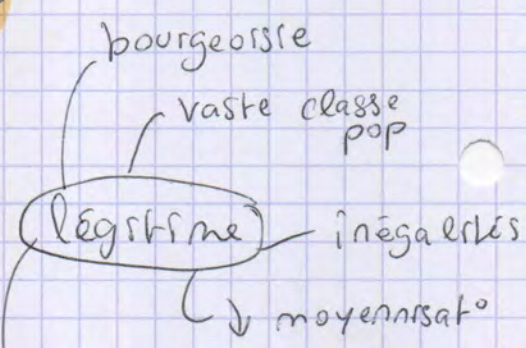 bourgeoisie
vaste classe
pop
légitime
inégalités
↓ moyennisat°